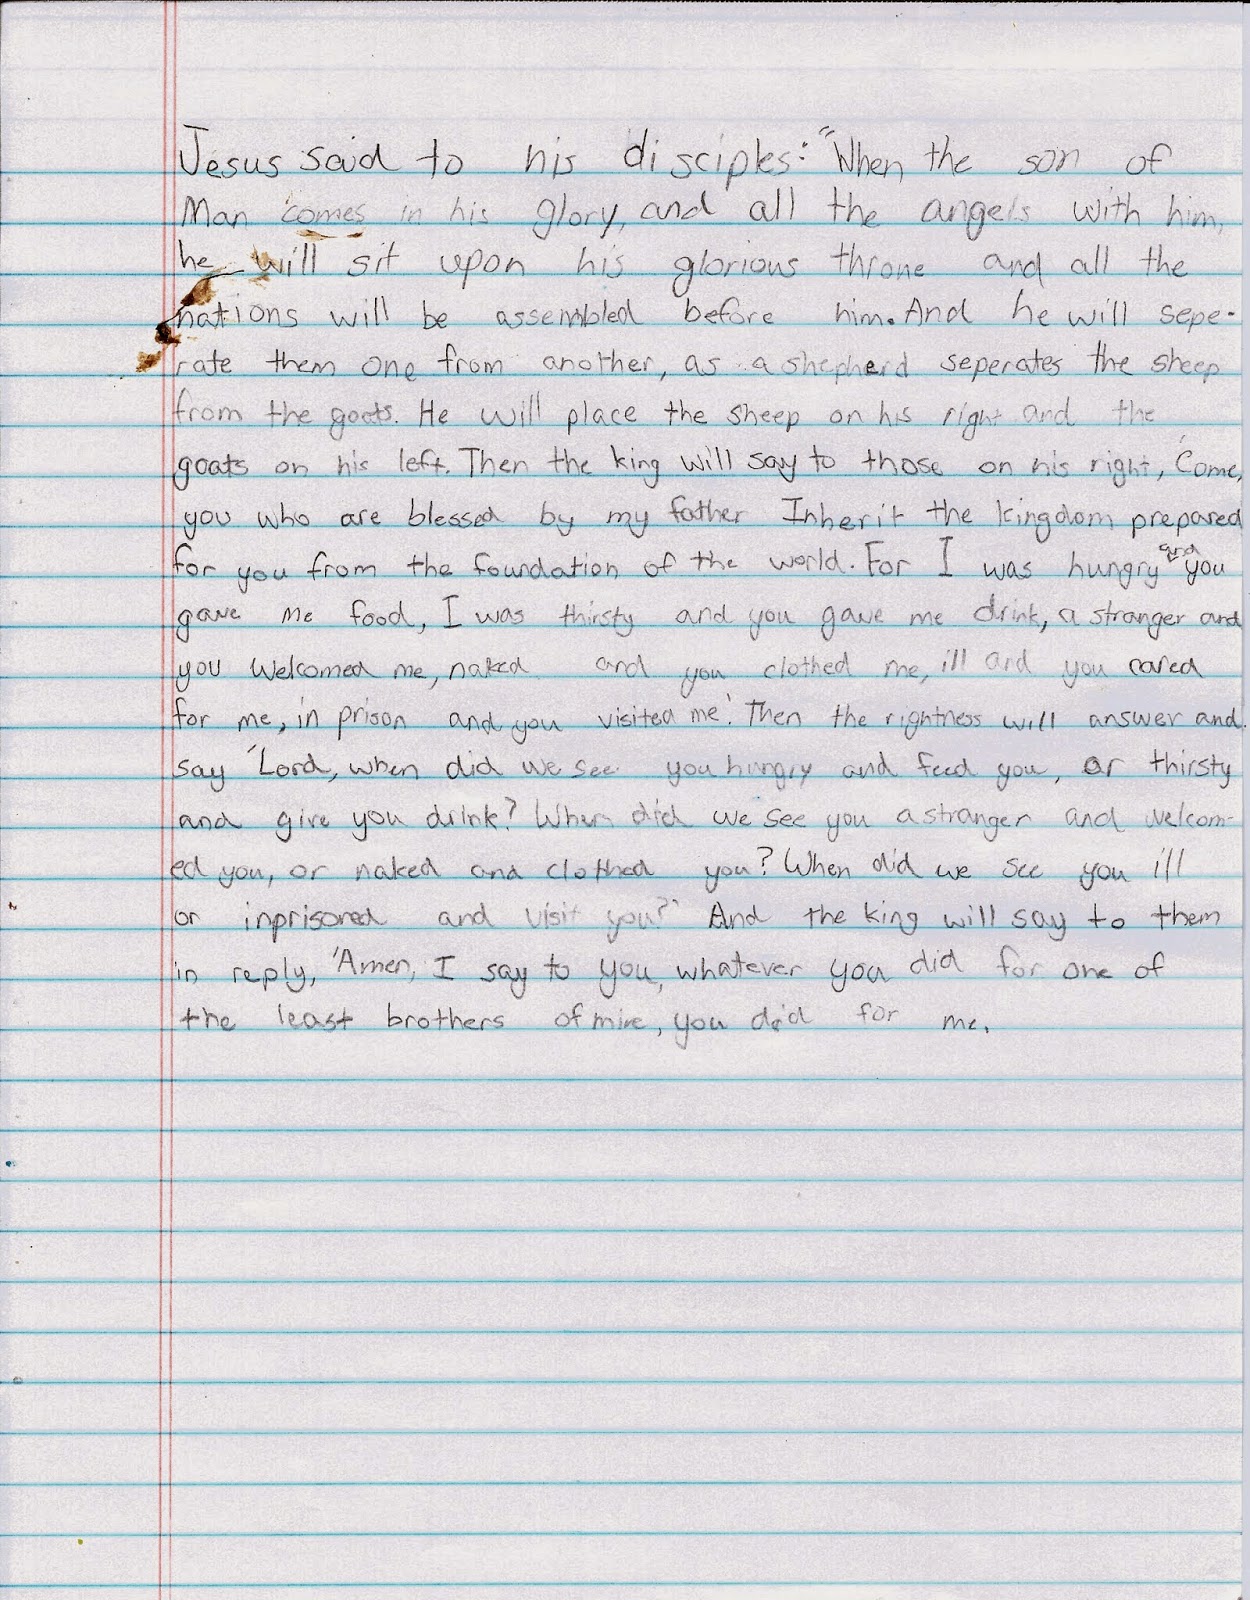 Jesus said to his disciples: "When the son of
Man comes in his glory, and all the angels with him,
he will sit upon his glorious throne and all the
nations will be assembled before him. And he will sepe-
rate them one from another, as a shepherd seperates the sheep
from the goats. He will place the sheep on his right and the
goats on his left. Then the king will say to those on his right, 'Come,
you who are blessed by my father Inherit the kingdom prepared
for you from the foundation of the world. For I was hungry and you
gave me food, I was thirsty and you gave me drink, a stranger and
you welcomed me, naked and you clothed me, ill and you cared
for me, in prison and you visited me.' Then the rightness will answer and
say 'Lord, when did we see you hungry and feed you, or thirsty
and give you drink? When did we see you a stranger and welcom-
ed you, or naked and clothed you? When did we see you ill
or inprisoned and visit you?' And the king will say to them
in reply, 'Amen, I say to you, whatever you did for one of
the least brothers of mine, you did for me.